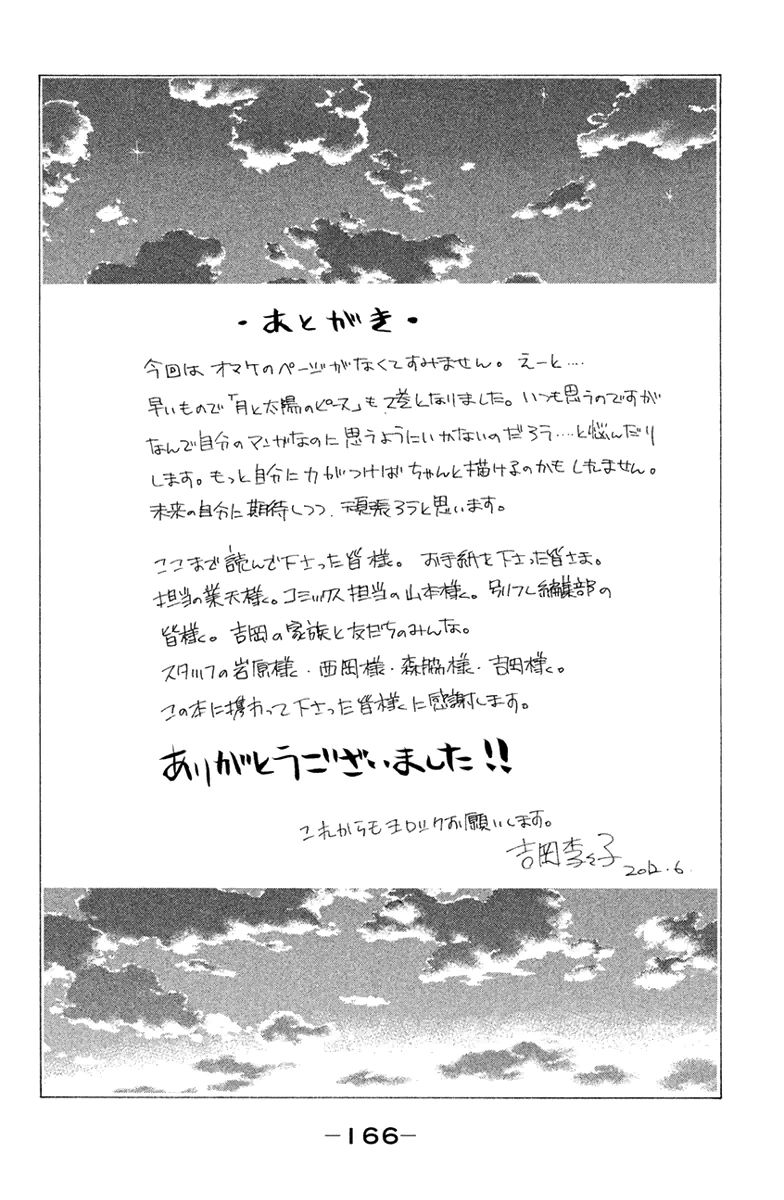 ・あとがき・
今回は オマケのページがなくてすみません。 えーと‥‥
早いもので「月と太陽のピース」も 2巻となりました。いつも思うのですが
なんで自分のマンガなのに思うようにいかないのだろう‥‥と悩んだり
します。もっと自分に力がつけばちゃんと描けるのかもしれません。
未来の自分に期待しつつ、頑張ろうと思います。
ここまで読んで下さった皆様。 お手紙を下さった皆さま。
担当の業天様。コミックス担当の山本様。別フレ編集部の
皆様。吉岡の家族と友だちのみんな。
スタッフの岩原様・西岡様・森脇様・吉田様。
この本に携わって下さった皆様に感謝します。
ありがとうございました!!
これからもヨロシクお願いします。
吉岡李々子 2012.6.
－166－